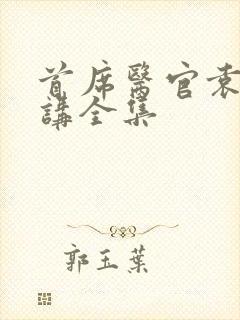 首席醫官袁
講全集
郭玉葉